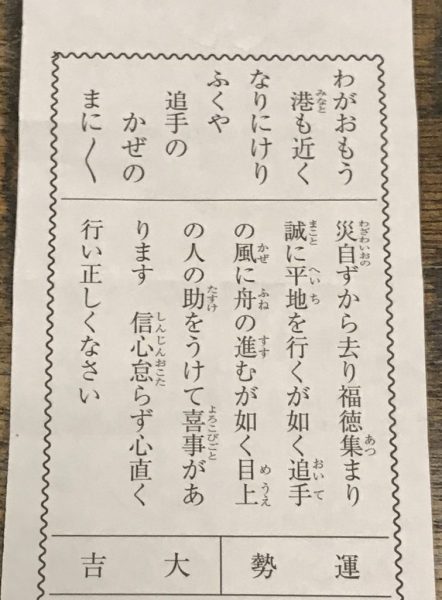 わがおもう
港も近く
なりにけり
ふくや
追手の
かぜの
まに〳〵
災自ずから去り福徳集まり
誠に平地を行くが如く追手
の風に舟の進むが如く目上
の人の助をうけて喜事があ
ります 信心怠らず心直く
行い正しくなさい
運勢
大吉